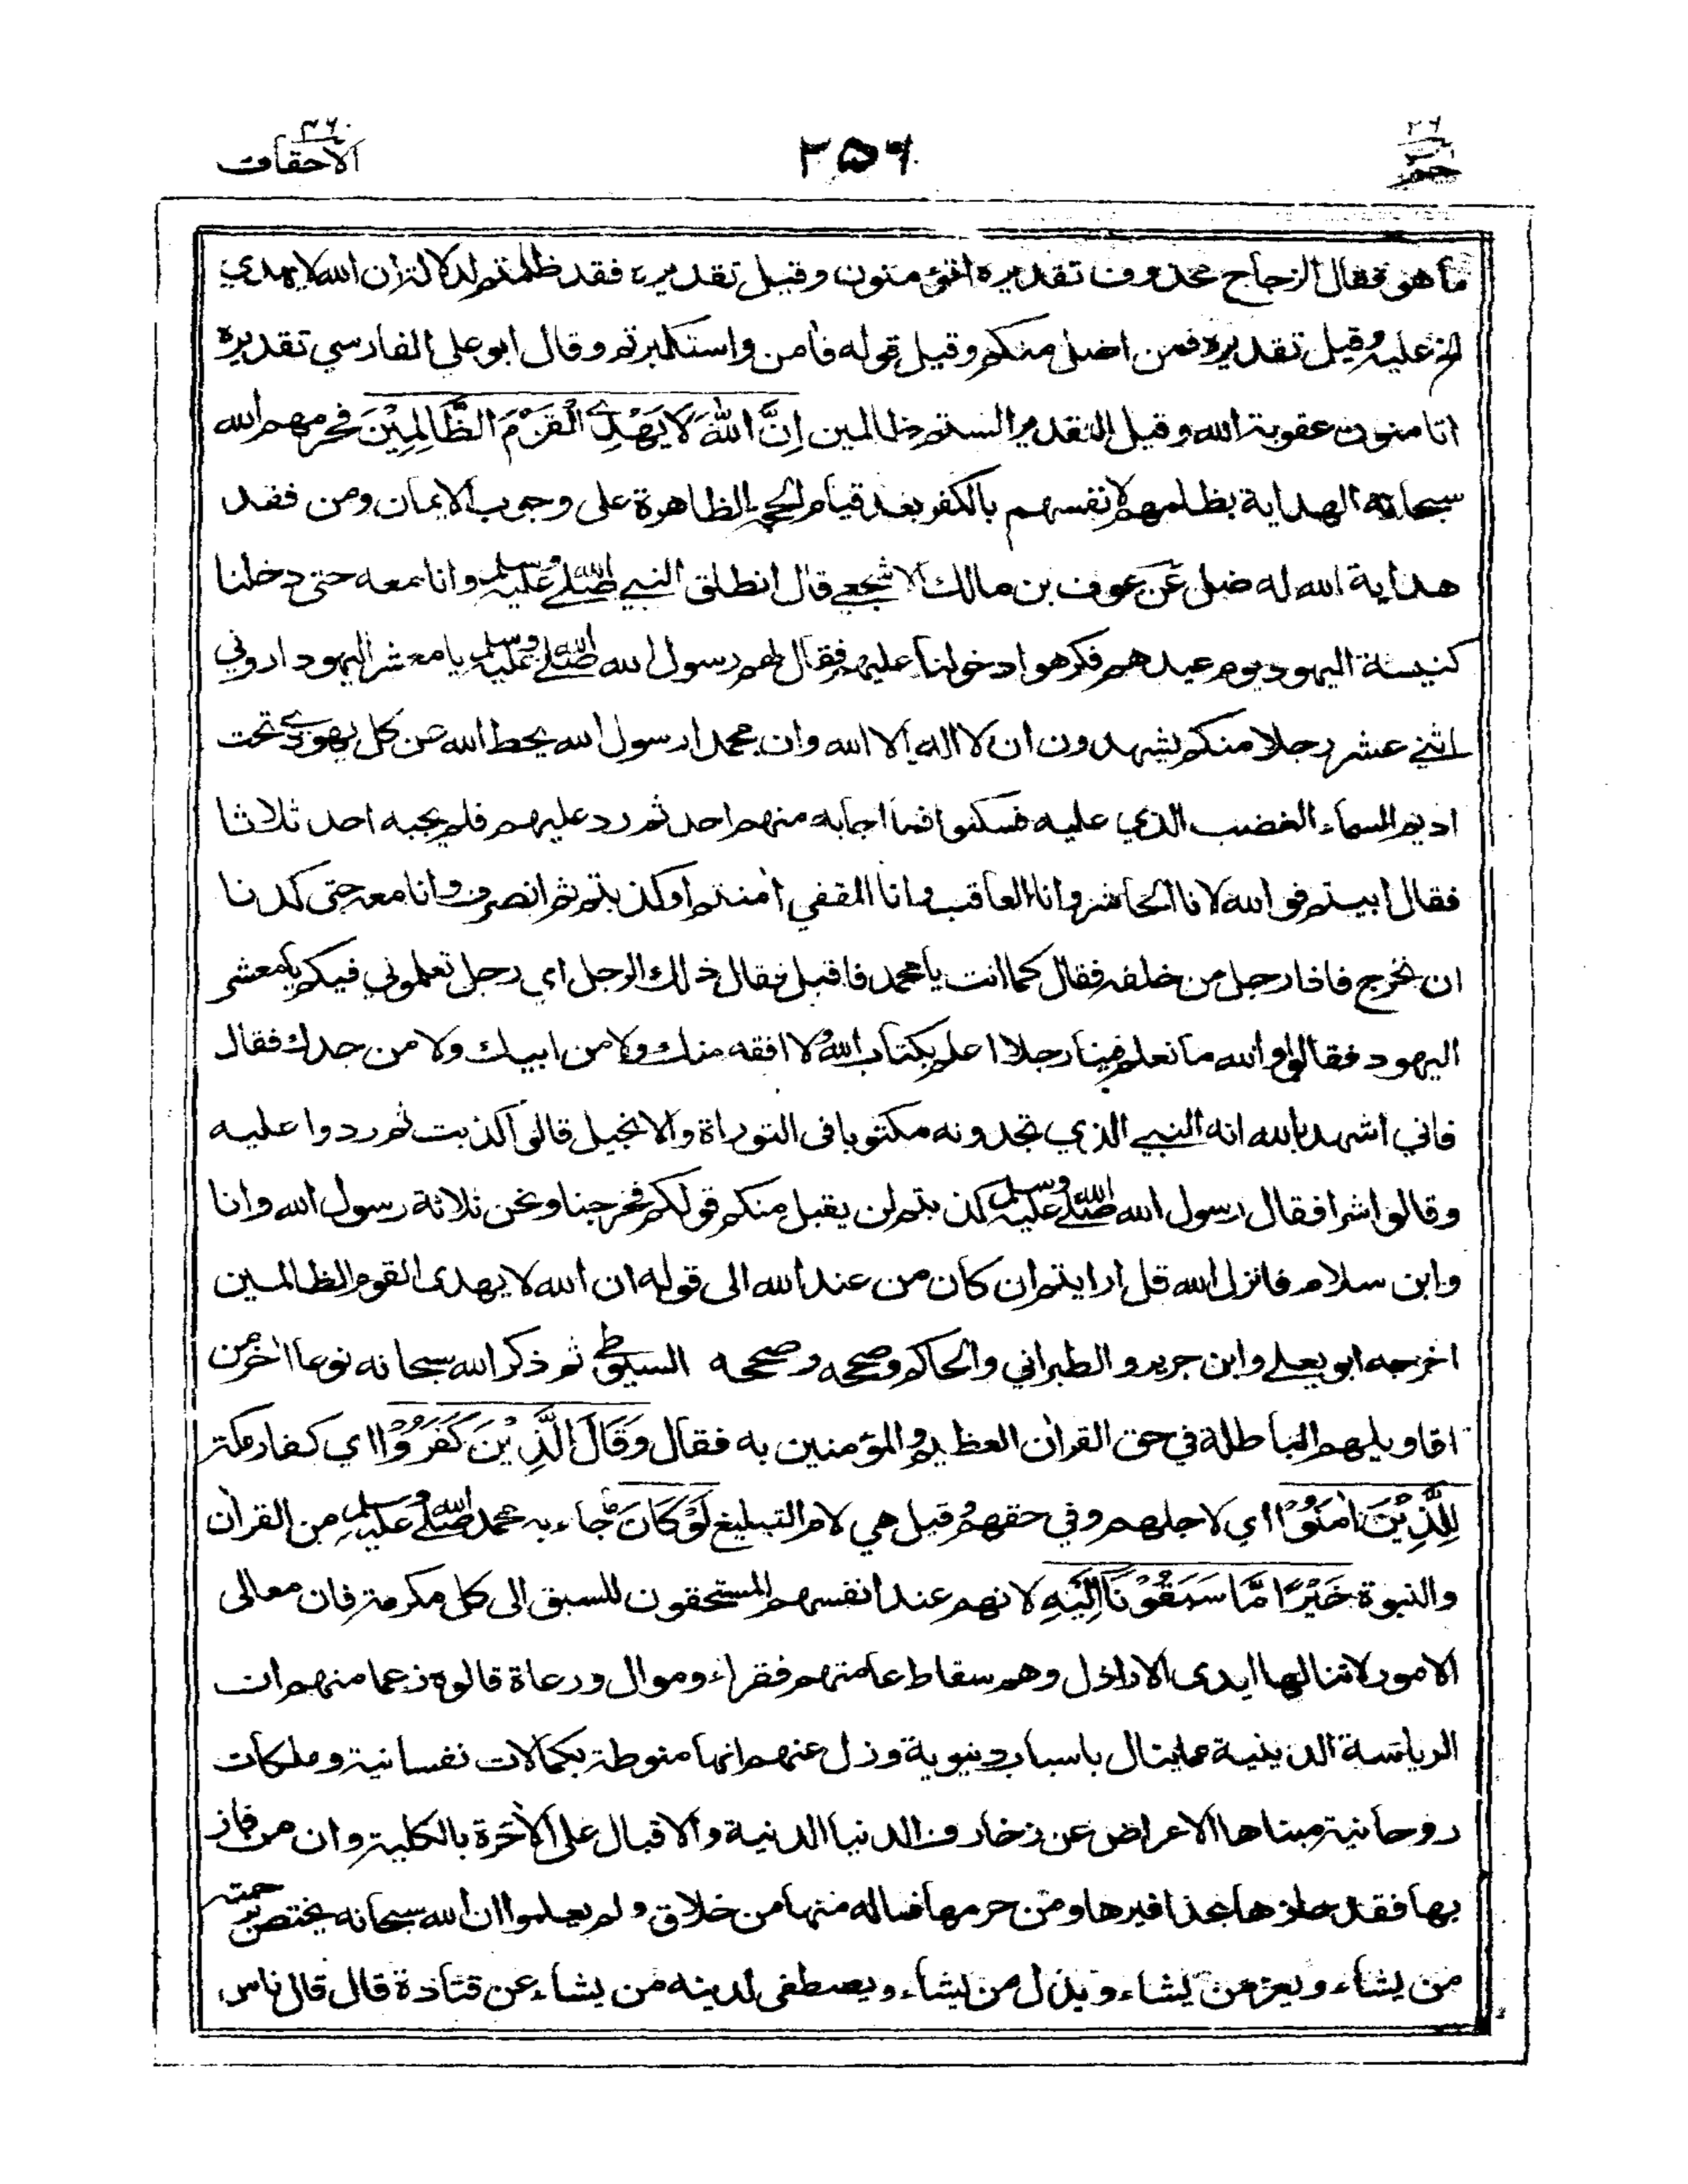 ٢٦ حم
٢٥٦
٤٦ الاحقاف
ما هو فقال الزجاج محذوف تقديره اتؤمنون وقيل تقديره فقد ظلمتم لدلالة ان الله لا يهدي
الخ عليه وقيل تقديره فمن اضل منكم وقيل قوله فامن واستكبرتم وقال ابو علي الفارسي تقديره
اتامنون عقوبة الله وقيل التقدير الستم ظالمين إِنَّ اللهَ لَا يَهْدِي الْقَوْمَ الظَّالِمِيْنَ فحرمهم الله
سبحانه الهداية بظلمهم لانفسهم بالكفر بعد قيام الحجة الظاهرة على وجوب الايمان ومن فقد
هداية الله له ضل عَن عوف بن مالك الاشجعي قال انطلق النبي صلى الله عليه وسلم وانا معه حتى دخلنا
كنيسة اليهود يوم عيدهم فكرهوا دخولنا عليهم فقال لهم رسول الله صلى الله عليه وسلم يا معشر اليهود اروني
اثني عشر رجلا منكم يشهدون ان لا اله الا الله وان محمدا رسول الله يحط الله عن كل يهودي تحت
اديم السماء الغضب الذي عليه فسكتوا فما اجابه منهم احد ثم رد عليهم فلم يجبه احد ثلاثا
فقال ابيتم فوالله لانا الحاشر وانا العاقب وانا المقفي اٰمنتم او كذبتم ثم انصرف وانا معه حتى كدنا
ان نخرج فاذا رجل من خلفه فقال كما انت يا محمد فاقبل فقال ذلك الرجل اي رجل تعلموني فيكم يا معشر
اليهود فقالوا والله ما نعلم فينا رجلا اعلم بكتاب الله ولا افقه منك ولا من ابيك ولا من جدك فقال
فاني اشهد بالله انه النبي الذي تجدونه مكتوبا في التوراة والانجيل قالوا كذبت ثم ردوا عليه
وقالوا شرا فقال رسول الله صلى الله عليه وسلم كذبتم لن يقبل منكم قولكم فخرجنا ونحن ثلاثة رسول الله وانا
وابن سلام فانزل الله قل ارايتم ان كان من عند الله الى قوله ان الله لا يهدى القوم الظالمين
اخرجه ابو يعلى وابن جرير والطبراني والحاكم وصححه وصححه السيوطي ثم ذكر الله سبحانه نوعا اٰخر من
اقاويلهم الباطلة في حق القراٰن العظيم والمؤمنين به فقال وَقَالَ الَّذِيْنَ كَفَرُوْا اي كفار مكة
لِلَّذِيْنَ اٰمَنُوْا اي لاجلهم وفي حقهم وقيل هي لام التبليغ لَوْ كَانَ ما جاء به محمد صلى الله عليه وسلم من القراٰن
والنبوة خَيْرًا مَّا سَبَقُوْنَا اِلَيْهِ لانهم عند انفسهم المستحقون للسبق الى كل مكرمة فان معالى
الامور لا تنالها ايدى الاراذل وهم سقاط عامتهم فقراء وموال ورعاة قالوه زعما منهم ان
الرياسة الدينية مما ينال باسباب دنيوية وزل عنهم انها منوطة بكمالات نفسانية وملكات
روحانية مبناها الاعراض عن زخارف الدنيا الدنية والاقبال على الاٰخرة بالكلية وان من فاز
بها فقد حازها بحذافيرها ومن حرمها فما له منها من خلاق ولم يعلموا ان الله سبحانه يختص برحمته
من يشاء ويعز من يشاء ويذل من يشاء ويصطفى لدينه من يشاء عن قتادة قال قال ناس